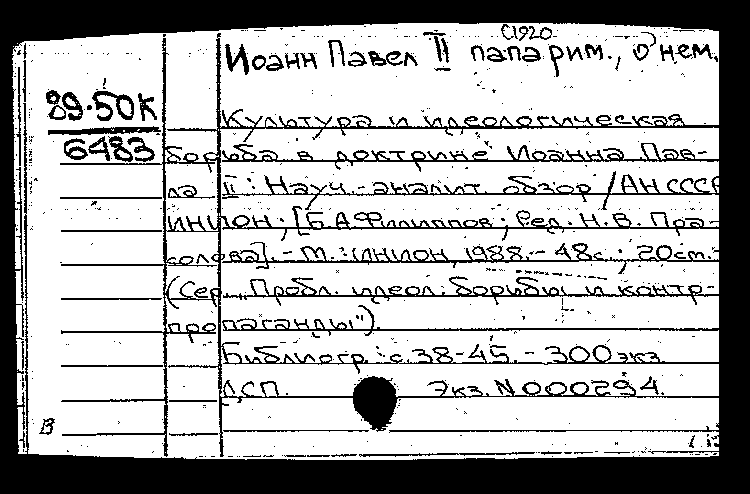 С1920
Иоанн Павел II папа рим., о нем.
89-50К
6483
Культура и идеологическая
борьба в доктрине Иоанна Пав-
ла II : Науч.-аналит. обзор / АН СССР
ИНИОН ; [Б.А.Филиппов ; Ред. Н.В. Пра-
солова]. - М. : ИНИОН, 1988. - 48с. ; 20см. -
(Сер. "Пробл. идеол. борьбы и контр-
пропаганды").
Библиогр.: с.38-45. - 300экз.
ДСП. Экз. N000294.
В